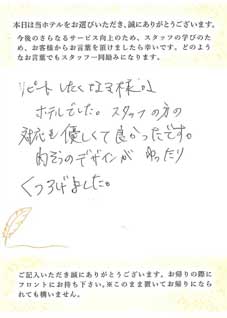 本日は当ホテルをお選びいただき、誠にありがとうございます。
今後のさらなるサービス向上のため、スタッフの学びのた
め、お客様からお言葉を頂けましたら幸いです。どのよう
なお言葉でもスタッフ一同励みになります。
リピートしたくなる様な
ホテルでした。スタッフの方の
対応も優しくて良かったです。
内そうのデザインが ゆったり
くつろげました。
ご記入いただき誠にありがとうございます。お帰りの際に
フロントにお持ち下さい。※このまま置いてお帰りになら
れても構いません。